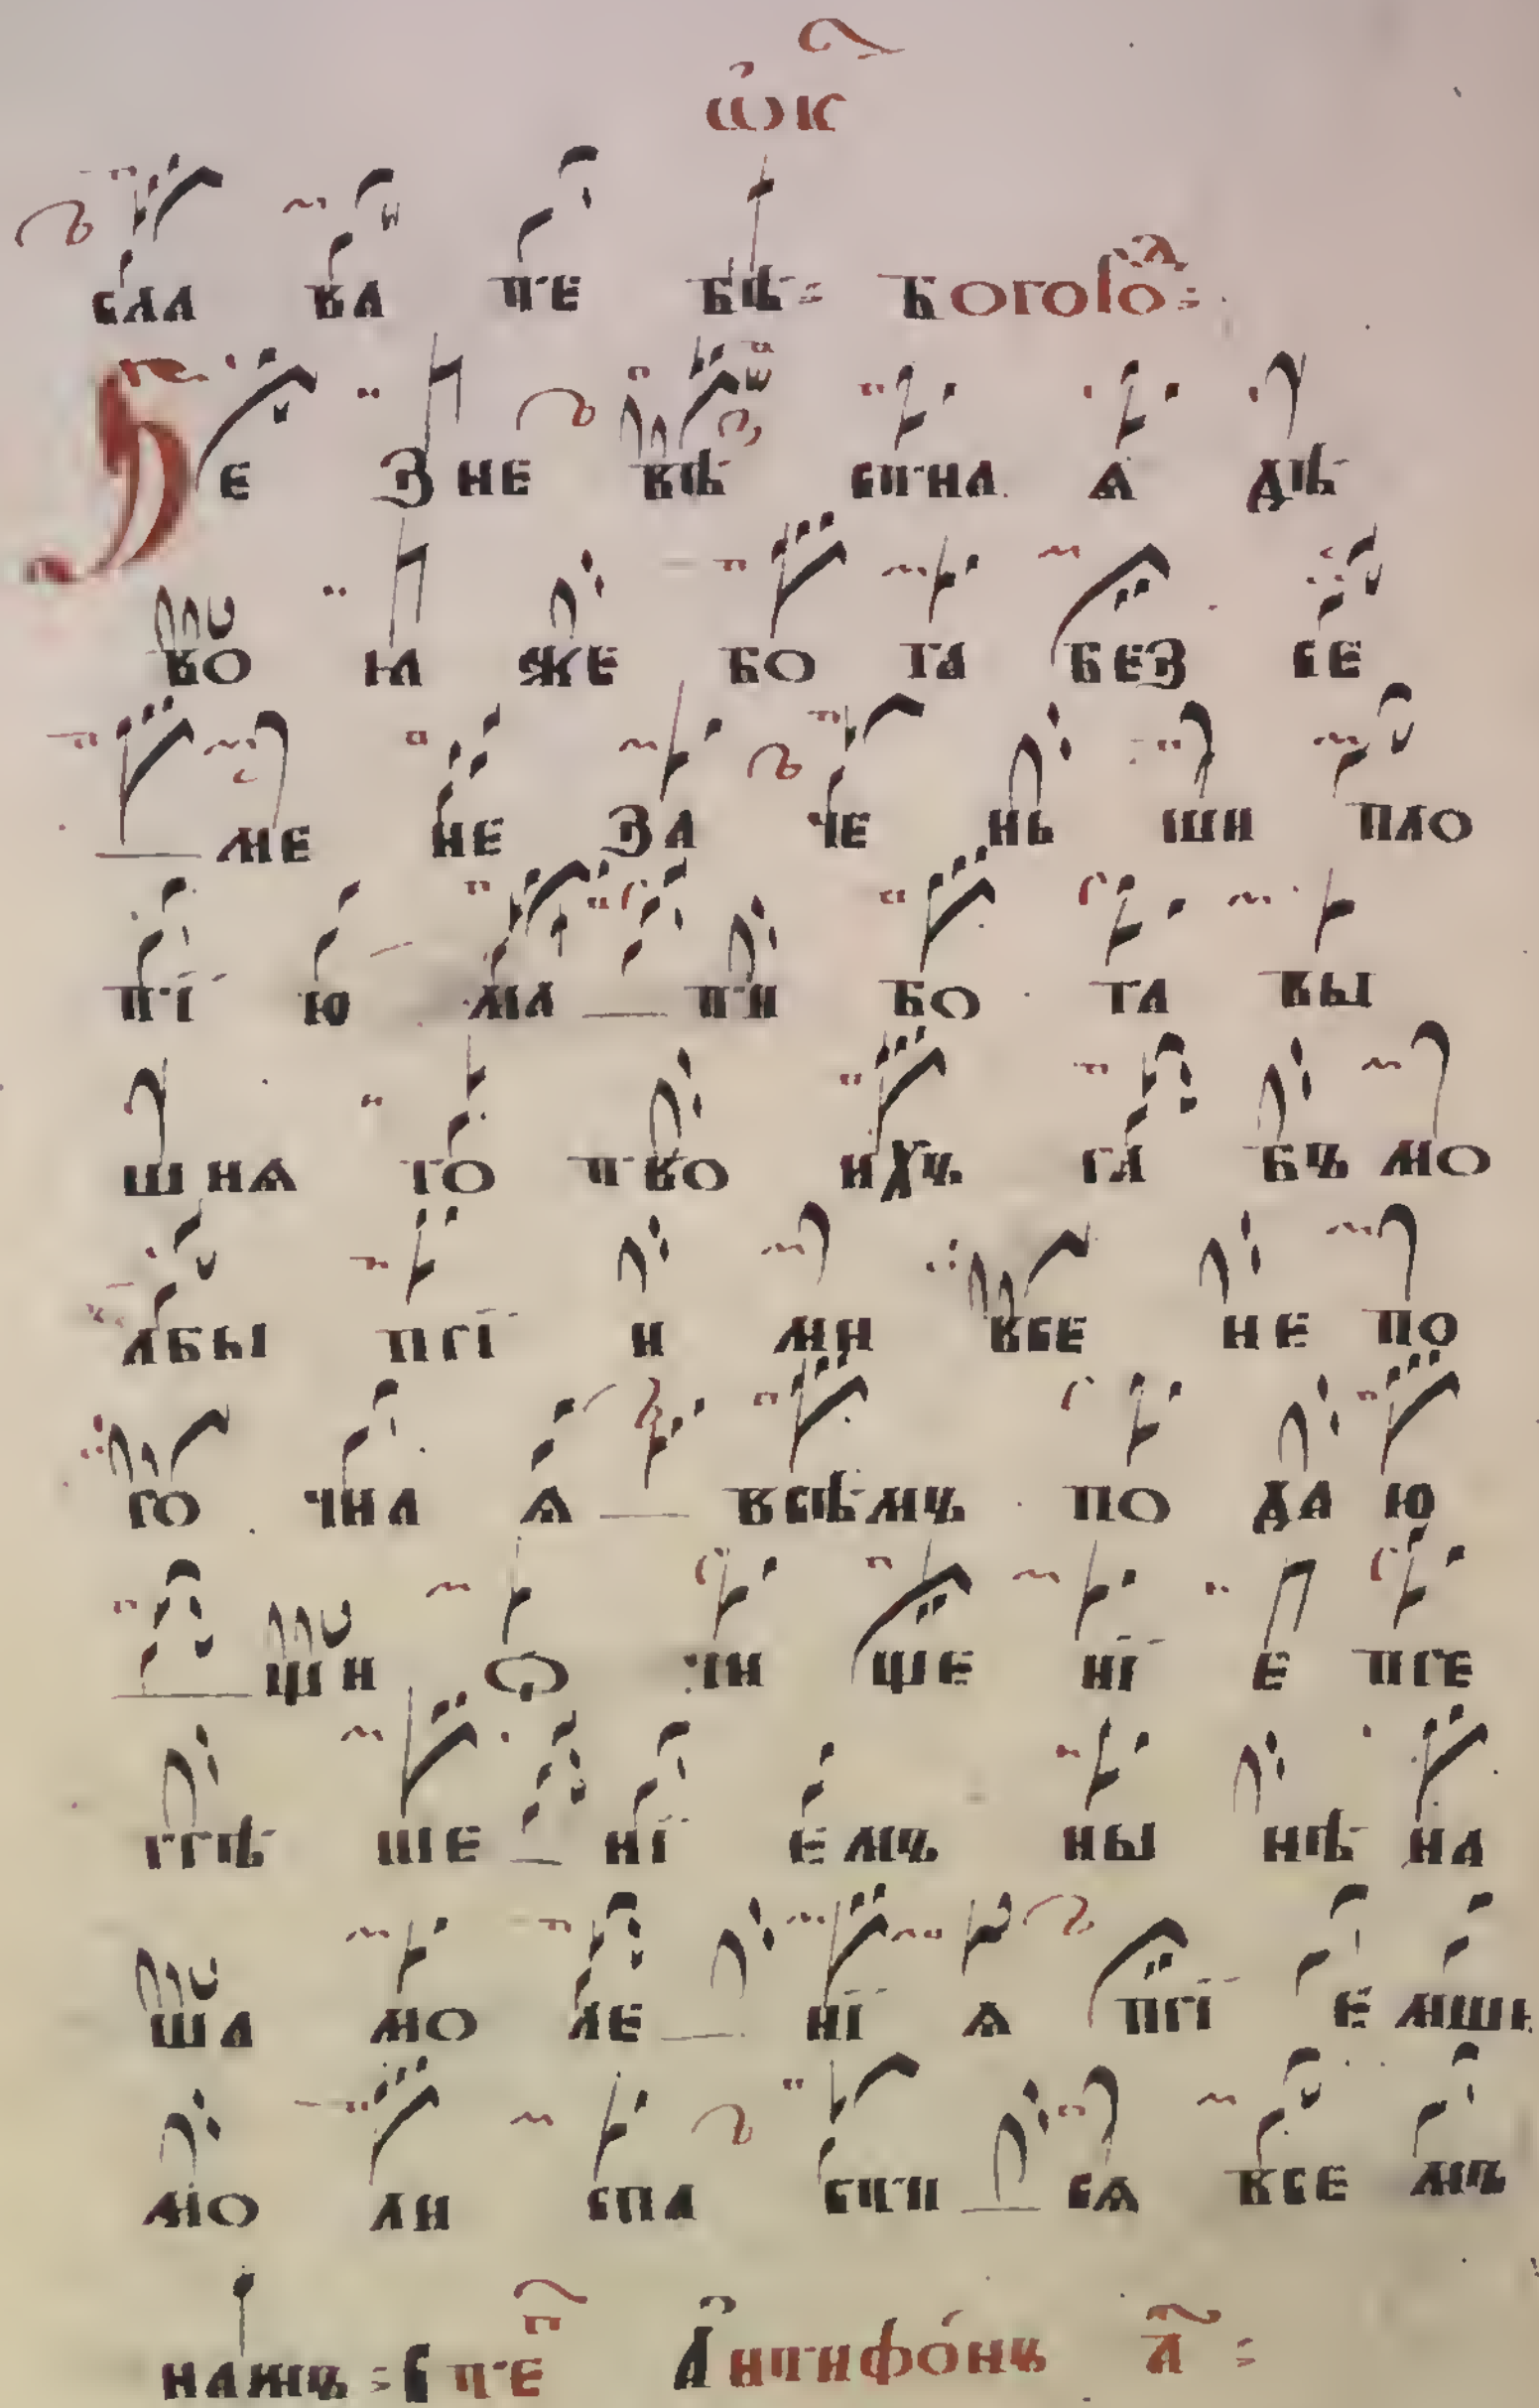 ѽк
сла ва те бѣ = Богоро҇д =
Бе з не вѣ стна ѧ дѣ
во ꙗ же бо га без се
ме не за че ньши пло
ті ю ма ти бо га вы
шнѧ го тво ихъ ра бъ мо
лбы прі и ми все не по
ро чна ѧ всѣмъ по даю
щи ѡ чи ще ні е пре
грѣ ше ні емъ ны нѣ на
ша мо ле ні ѧ прі емши
мо ли спа сти сѧ все мъ
намъ = сте҇п Антифо́нъ а҃ =